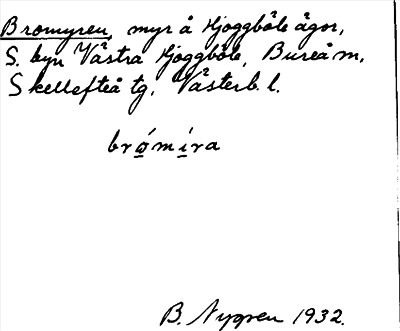 Bromyren, myr å Hjoggböle ägor,
S. byn Västra Hjoggböle, Bureå m,
Skellefteå tg, Västerb. l.
brǿmi̱ra
B. Nygren 1932.